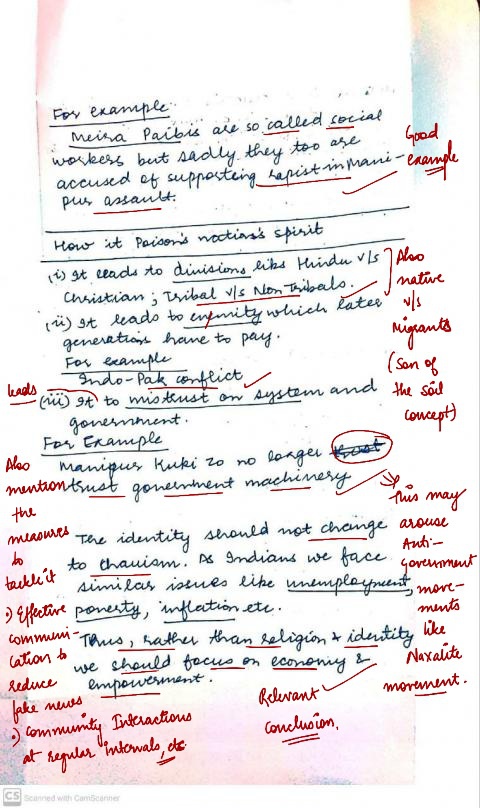 For example
Meira Paibis are so called social
workers but sadly they too are
accused of supporting rapist in Mani-
pur assault.
Good
example
How it Poison's nation's spirit
(i) It leads to divisions like Hindu v/s
Christian ; Tribal v/s Non Tribals.
(ii) It leads to enmity which later
generations have to pay.
For example
Indo-Pak conflict
(iii) It to mistrust on system and
government.
For Example
Manipur Kuki Zo no longer trust
trust government machinery
Also
native
v/s
Migrants
(Son of
the soil
concept)
leads
The identity should not change
to chauism. As Indians we face
similar issues like unemployment,
poverty, inflation etc.
Thus, rather than religion & identity
we should focus on economy &
empowerment.
Also
mention
the
measures
to
tackle it
•) Effective
communi-
cation to
reduce
fake news
•) Community Interactions
at regular intervals, etc
This may
arouse
Anti-
government
move-
ments
like
Naxalite
movement.
Relevant
conclusion.
CS Scanned with CamScanner